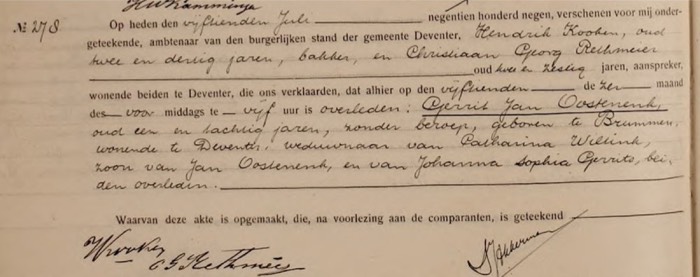 No 278
Op heden den vijftienden Juli negentien honderd negen, verschenen voor mij onder-
geteekende, ambtenaar van den burgerlijken stand der gemeente Deventer, Hendrik Kooken, oud
twee en dertig jaren, bakker, en Christiaan Georg Rethmeier
oud twee en zestig jaren, aanspreker,
wonende beiden te Deventer, die ons verklaarden, dat alhier op den vijftienden dezer maand
des voor middags te vijf uur is overleden: Gerrit Jan Oostenenk,
oud een en tachtig jaren, zonder beroep, geboren te Brummen,
wonende te Deventer, weduwnaar van Catharina Willink,
zoon van Jan Oostenenk, en van Johanna Sophia Gerrits, bei-
den overleden.
Waarvan deze akte is opgemaakt, die, na voorlezing aan de comparanten, is geteekend
CG Rethmeier